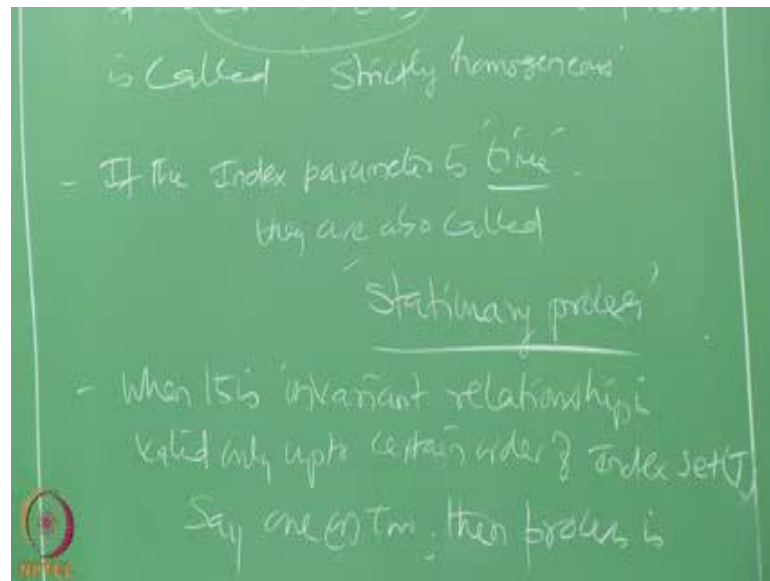 is called 'strictly homogeneous'
- If the Index parameter is "time".
they are also called
'Stationary process'
- When this invariant relationship is
valid only upto certain order of Index set (T)
Say one (or) Two, then process is
NPTEL